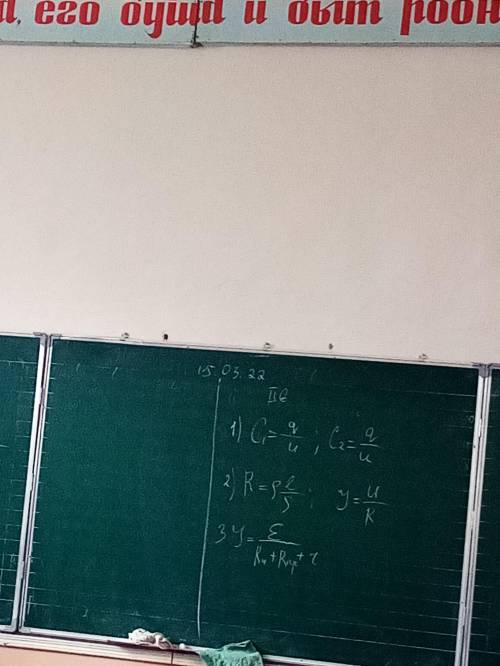 , его душа и быт родн
15.03.22
II в
1) C₁ = q/u ; C₂ = q/u
2) R = ρ l/S ; У = U/R
3 У = ε/(Rн + Rпр + r)